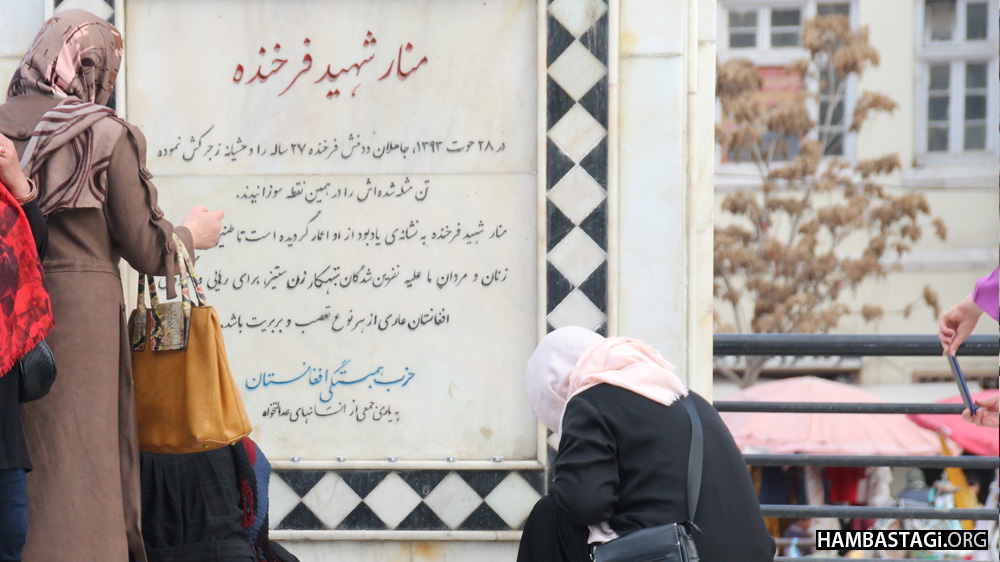 منار شهید فرخنده
در ۲۸ حوت ۱۳۹۳، جاهلان ددمنش فرخنده ۲۷ ساله را وحشیانه زجرکش نموده
تن مثله شده‌اش را در همین نقطه سوزانیدند.
منار شهید فرخنده به نشانه‌ی یادبود از او اعمار گردیده است تا طنین
زنان و مردان ما علیه نفرین شدگان تبهکار زن ستیز، برای رهایی و
افغانستان عاری از هر نوع تعصب و بربریت باشد.
حزب همبستگی افغانستان
به یاری جمعی از انسانهای عدالتخواه
HAMBASTAGI.ORG